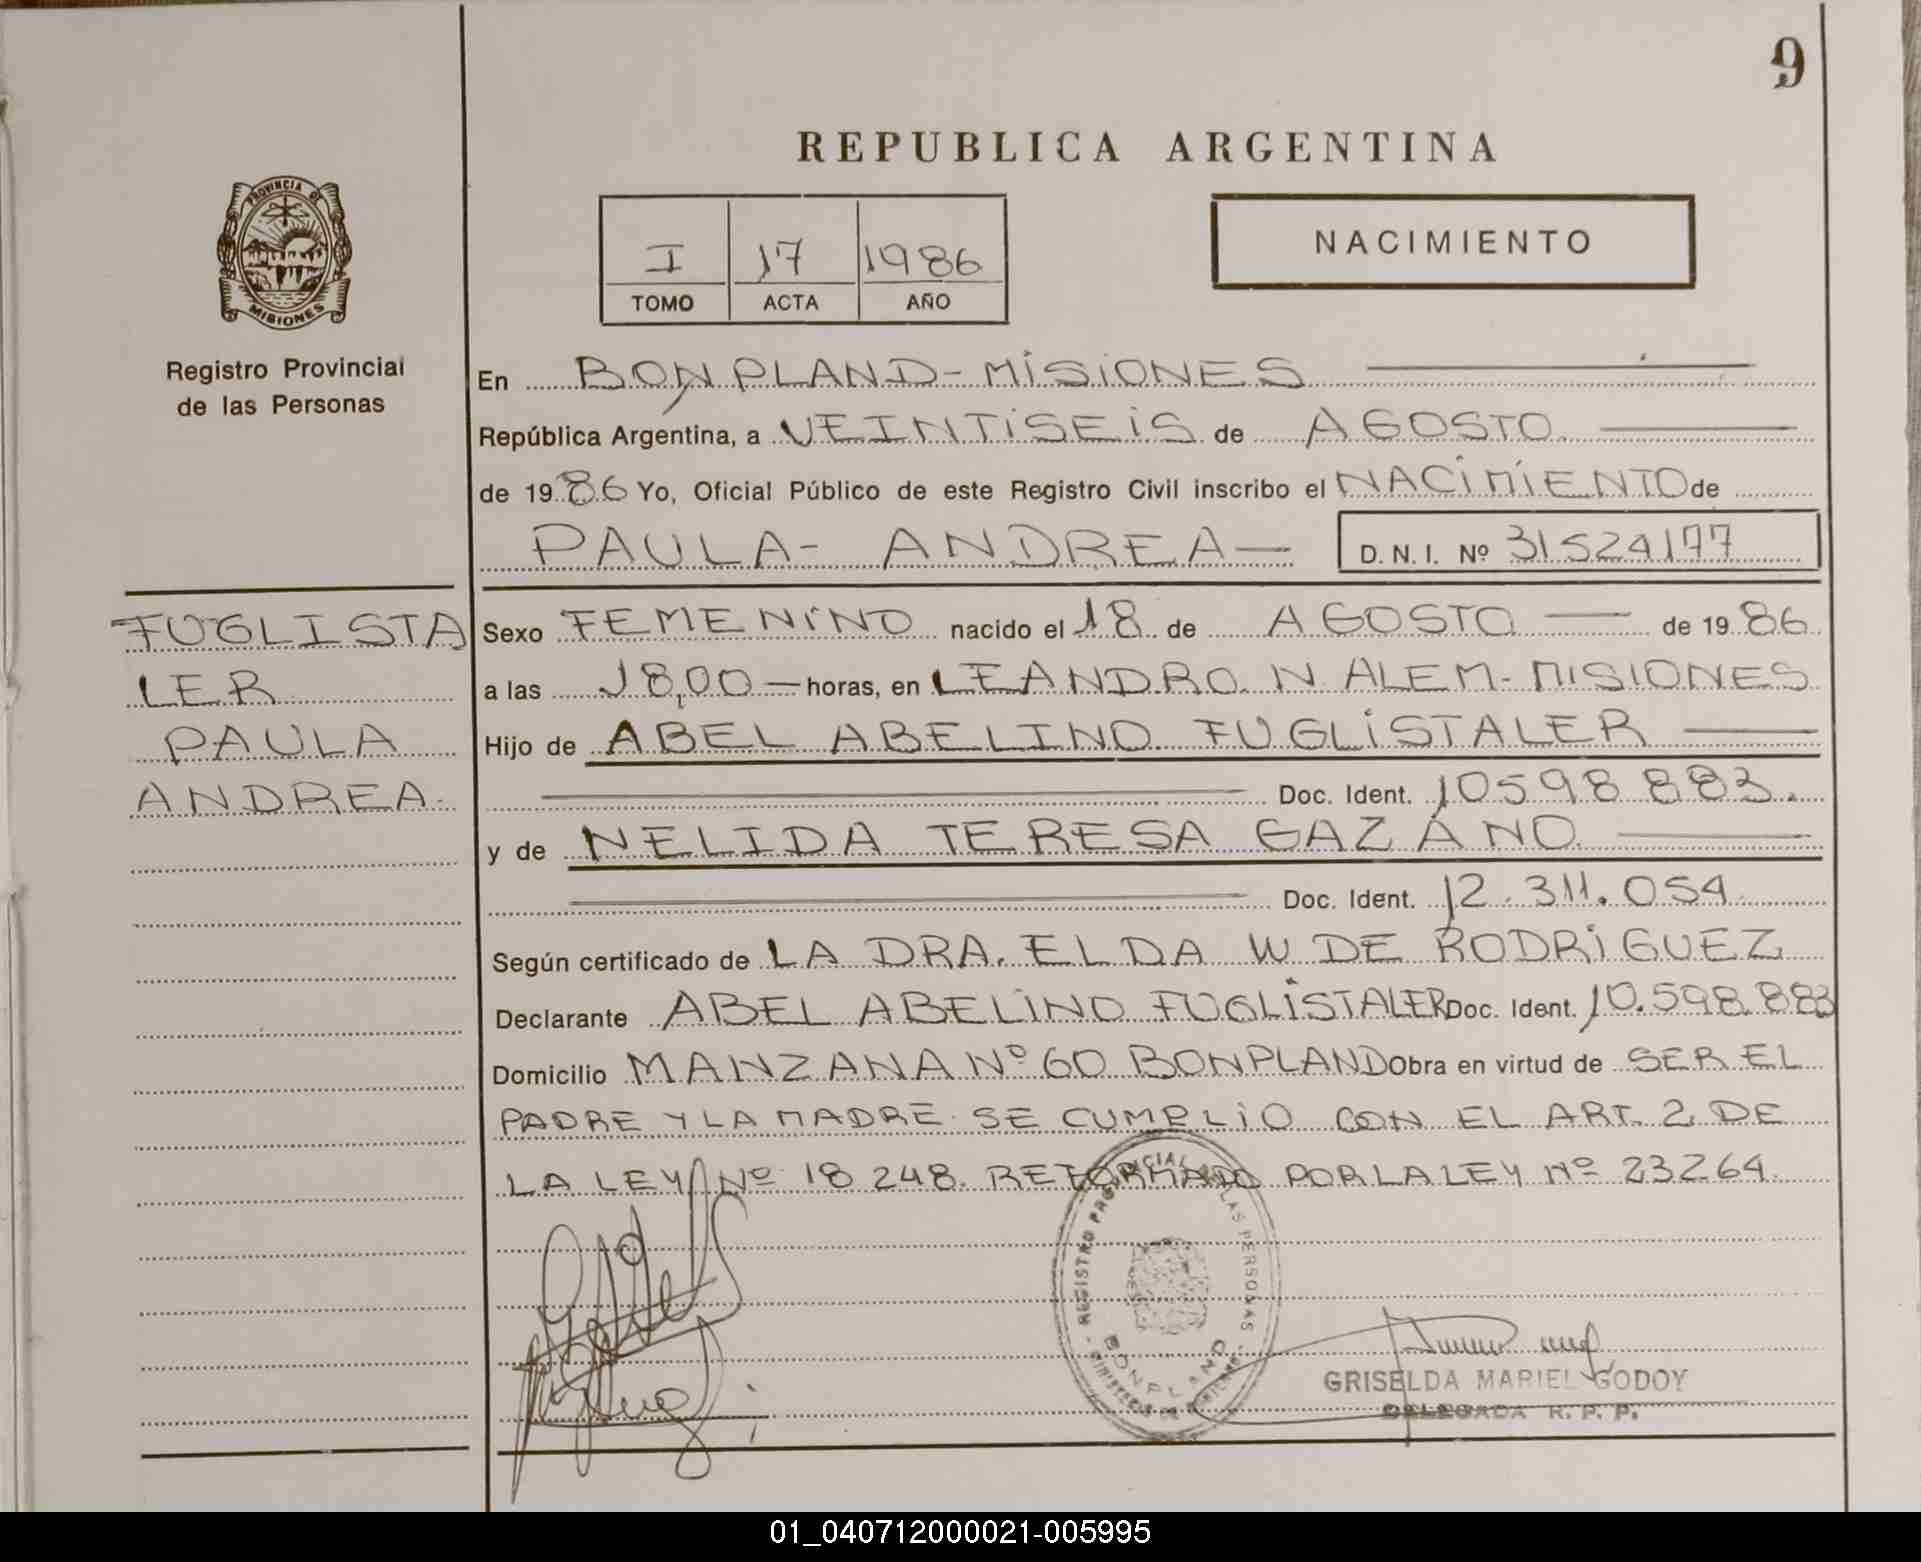 9
REPUBLICA ARGENTINA
PROVINCIA DE
MISIONES
I 17 1986
TOMO ACTA AÑO
NACIMIENTO
Registro Provincial
de las Personas
En BONPLAND-MISIONES
República Argentina, a VEINTISEIS de AGOSTO
de 1986 Yo, Oficial Público de este Registro Civil inscribo el NACIMIENTO de
PAULA- ANDREA— D. N. I. Nº 31524177
FUGLISTA
LER
PAULA
ANDREA-
Sexo FEMENINO nacido el 18 de AGOSTO — de 1986
a las 18,00 — horas, en LEANDRO N ALEM-MISIONES
Hijo de ABEL ABELINO FUGLISTALER
Doc. Ident. 10598 883.
y de NELIDA TERESA GAZANO
Doc. Ident. 12.311.054
Según certificado de LA DRA. ELDA W DE RODRIGUEZ
Declarante ABEL ABELINO FUGLISTALER Doc. Ident. 10.598.883
Domicilio MANZANA Nº 60 BONPLAND Obra en virtud de SER EL
PADRE Y LA MADRE SE CUMPLIO CON EL ART. 2 DE
LA LEY Nº 18 248. REFORMADO POR LA LEY Nº 23264.
REGISTRO PROVINCIAL DE LAS PERSONAS
BONPLAND
GRISELDA MARIEL GODOY
DELEGADA R. P. P.
01_040712000021-005995